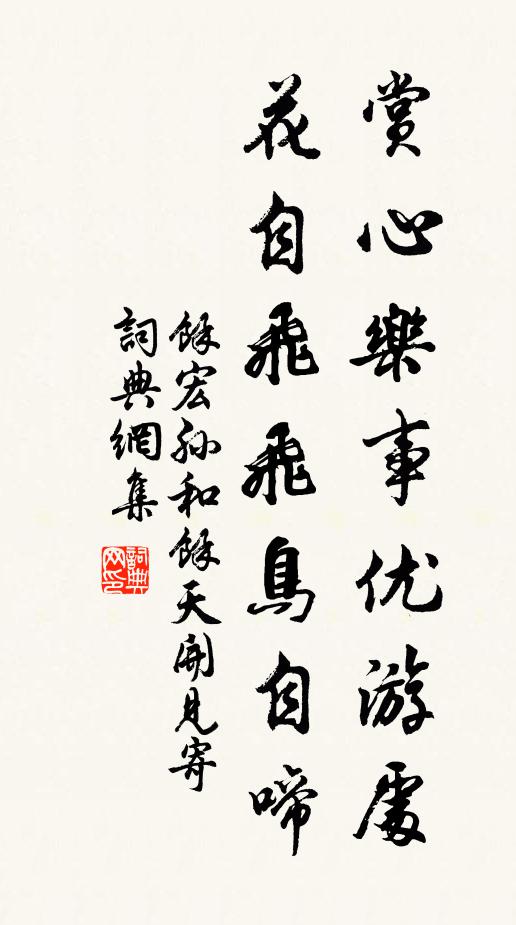 賞心樂事优游處
花自飛飛鳥自啼
餘宏孫和餘天開見寄
詞典網集
詞典网印